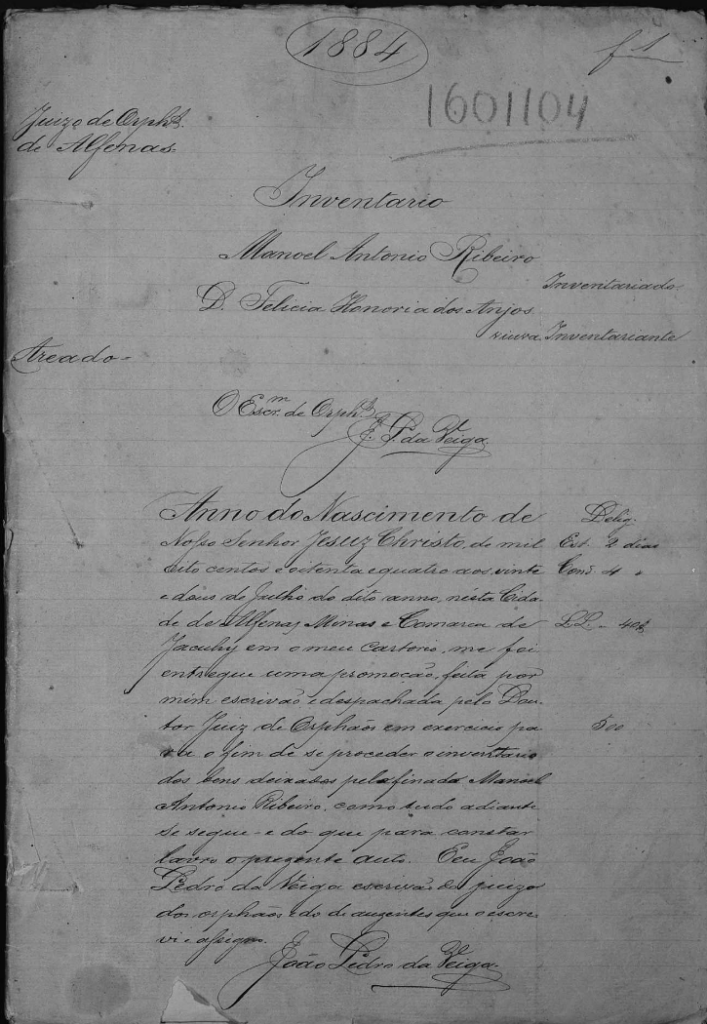 1884
f 1
1601104
Juizo de Orphs.
de Alfenas.
Inventario
Manoel Antonio Ribeiro
Inventariado
D. Felicia Honoria dos Anjos.
viuva Inventariante
Areado-
O Escrm. de Orphs.
J. P. da Veiga.
Anno do Nascimento de
Nosso Senhor Jesuz Christo, de mil
oito centos e oitenta e quatro aos vinte
e dous de Julho do dito anno, nesta Cida-
de de Alfenas, Minas e Comarca de
Jacuhy em o meu cartorio, me foi
entregue uma promoção, feita por
mim escrivão e despachada pelo Dou-
tor Juiz de Orphãos em exercicio pa
ra o fim de se proceder o inventario
dos bens deixados pelo finado Manoel
Antonio Ribeiro, como tudo adiante
se segue e do que para constar
lavro o prezente auto. Eeu João
Pedro da Veiga escrivão do juizo
dos orphãos e do de auzentes que o escre
vi e assigno.
João Pedro da Veiga.
Delig.
Est. 2 dias
Cond. 4 "
LL - 40$
500